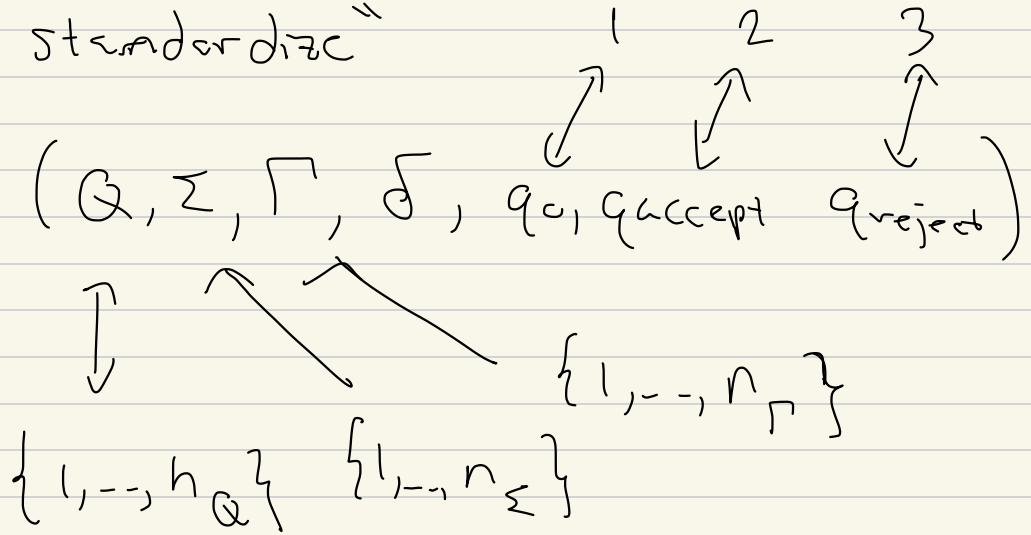 standardize" 1 2 3
(Q, Σ, Γ, δ, q0, qaccept qreject)
{1,--, nΓ}
{1,--, nQ} {1,--, nΣ}